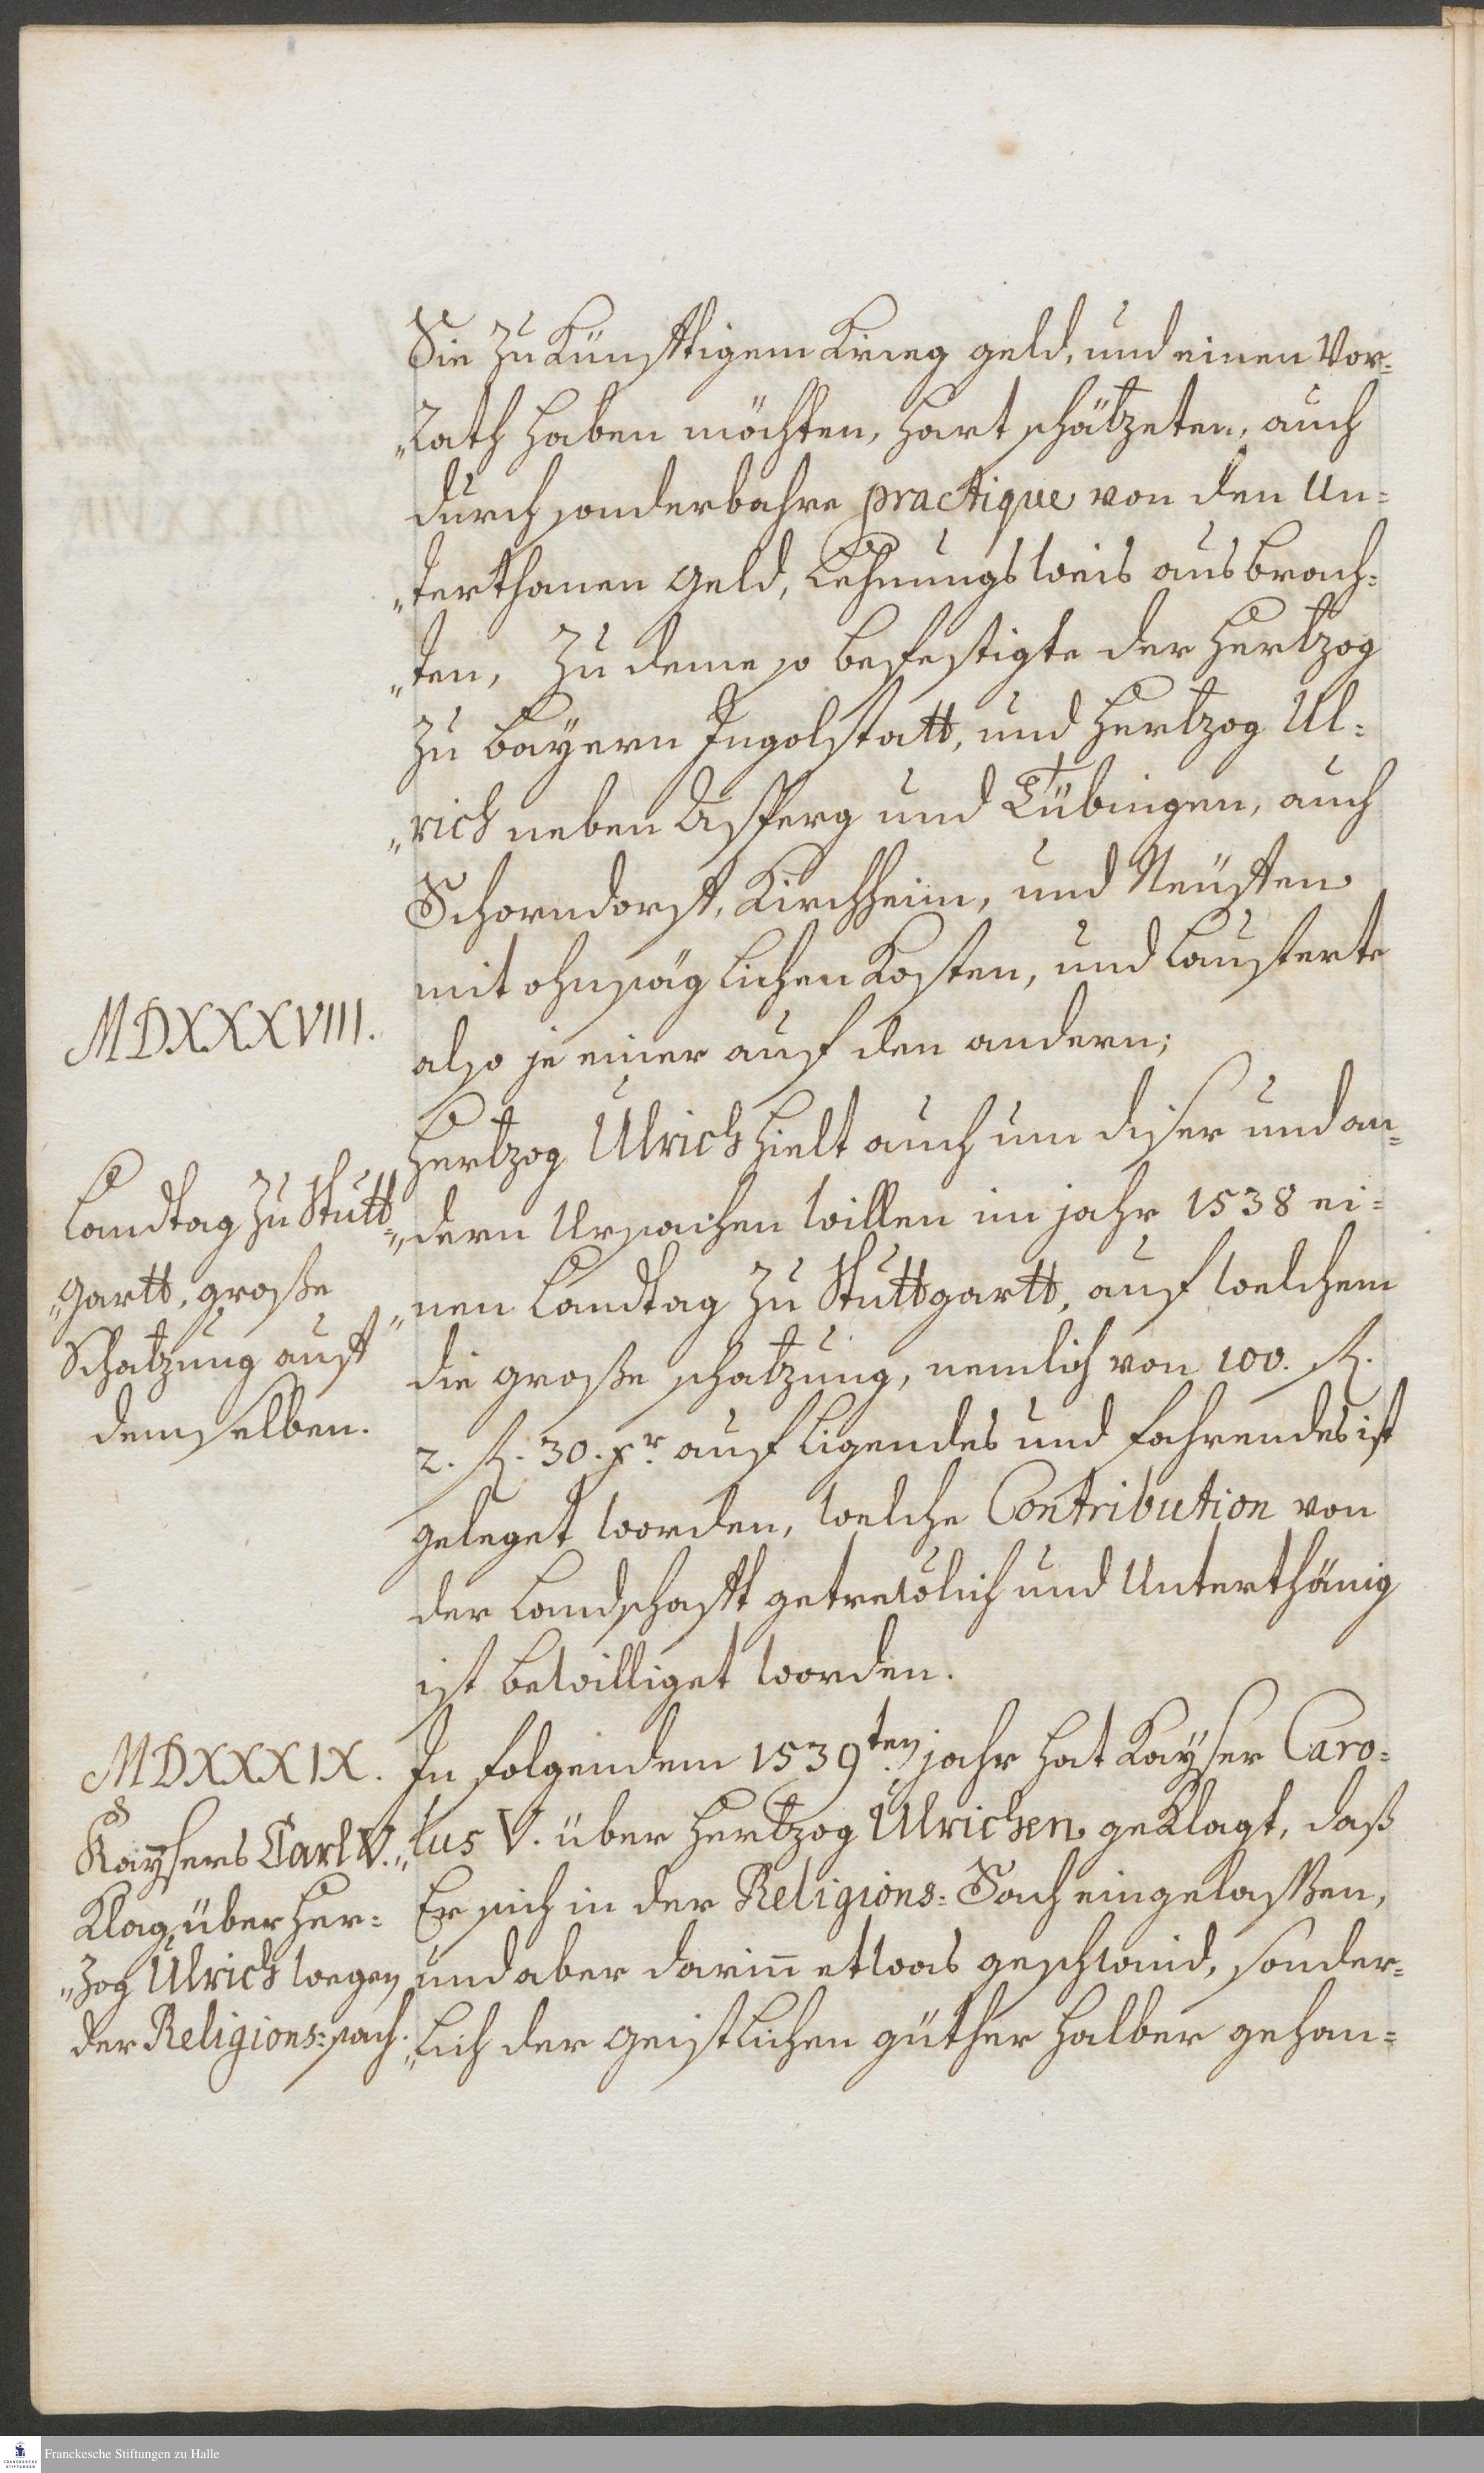 Sie zu Künfftigem Krieg geld, und einen Vor=
„Rath haben möchten, hart schätzeten, auch
durch sonderbahre practique von den Un=
„terthanen geld, Lehnungsweis ausbrach=
„ten, Zu deme so befestigte der Hertzog
zu Bayern Ingolstatt, und Hertzog Ul=
„rich neben Asperg und Tübingen, auch
Schorndorff, Kirchheim, und Neüffen
mit ohnsäglichen Kosten, und Lausterte
MDXXXVIII.
also je einer auf den andern;
Hertzog Ulrich hielt auch um diser und an=
„dern Ursachen willen im jahr 1538 ei=
„nen Landtag zu Stuttgartt, auf welchem
die große schatzung, nemlich von 100. fl.
2. fl. 30. xr. auf Ligendes und fahrendes ist
geleget worden, welche Contribution von
der Landschafft getreẅlich und Unterthänig
ist bewilliget worden.
Landtag zu Stutt=
„gartt, große
Schatzung auff
demselben.
MDXXXIX.
In folgendem 1539ten jahr hat Kayser Caro=
„lus V. über Hertzog Ulrichen geklagt, daß
Er sich in der Religions=Sach eingelaßen,
und aber darinn etwas geschwind, sonder=
„lich der geistlichen güther halber gehan=
Kaysers Carl V.
Klag über Her=
„zog Ulrich wegen
der Religions=sach.
Franckesche Stiftungen zu Halle
FRANCKESCHE
STIFTUNGEN